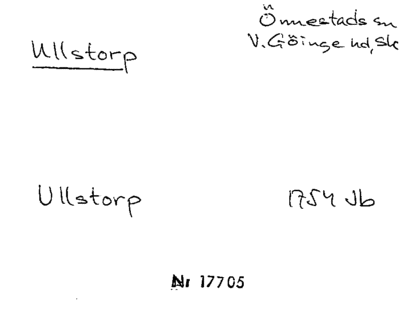 Önnestads sn
Ullstorp
V. Göinge hd, Sk
Ullstorp
1754 Jb
Nr 17705